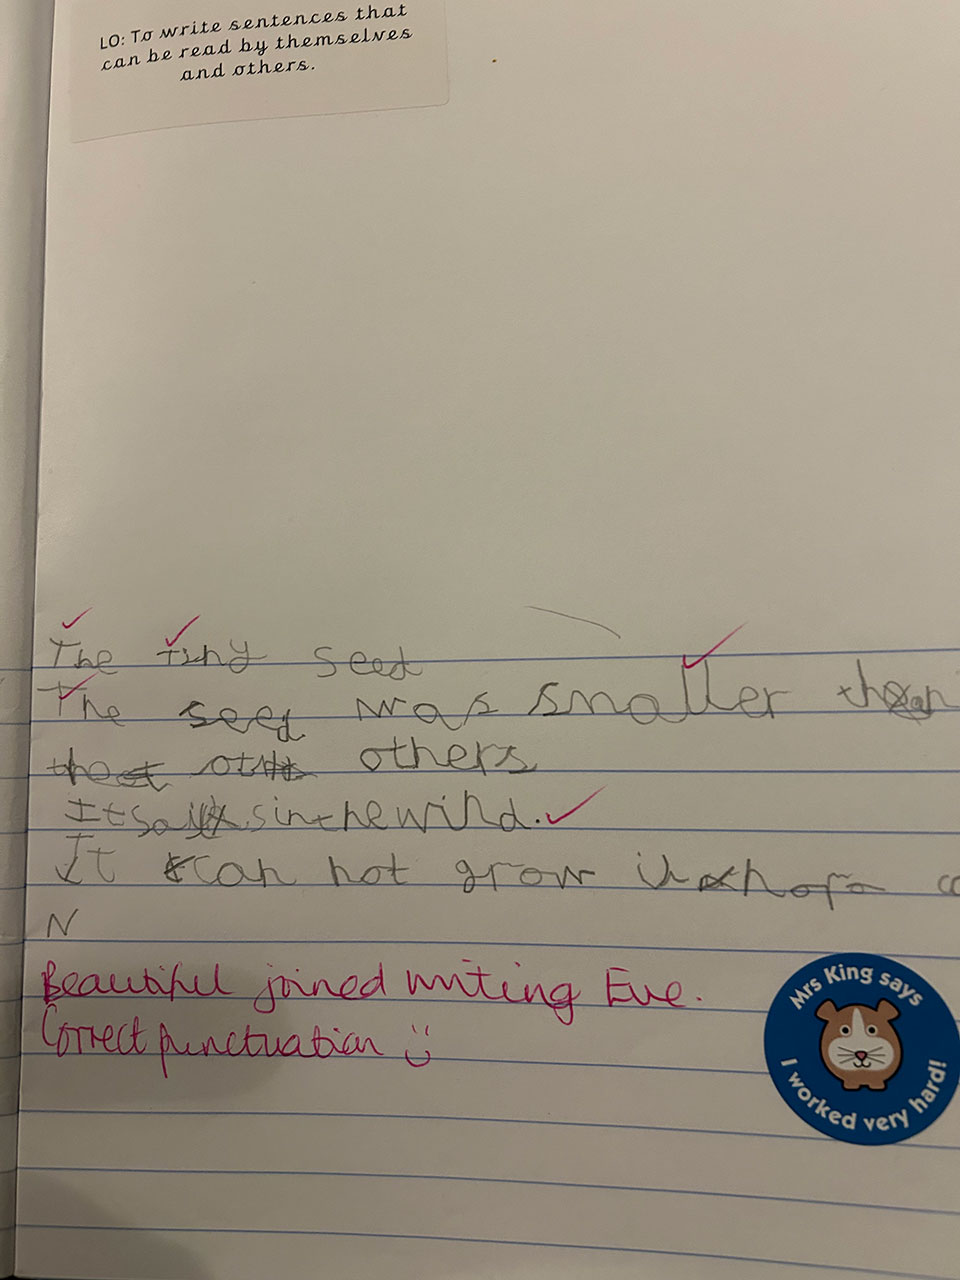 LO: To write sentences that
can be read by themselves
and others.
The tiny seed
The seed was smaller than
others
It sails in the wind.
It can not grow
N
Beautiful joined writing Eve.
Correct punctuation :)
Mrs King says
I worked very hard!